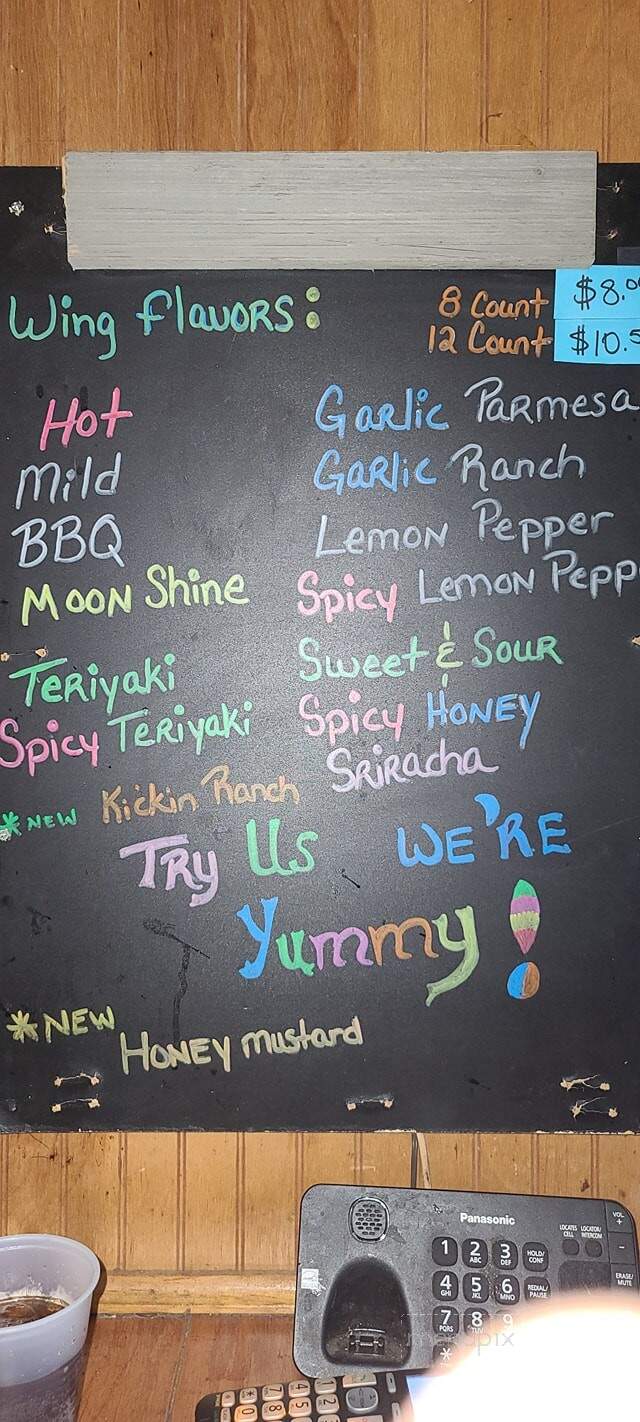 Wing Flavors:
8 Count $8.0
12 Count $10.5
Hot
Mild
BBQ
Moon Shine
Teriyaki
Spicy Teriyaki
*NEW Kickin Ranch
Garlic Parmesa
Garlic Ranch
Lemon Pepper
Spicy Lemon Pepp
Sweet & Sour
Spicy Honey
Sriracha
Try Us WE'RE
Yummy!
*NEW
Honey mustard
Panasonic
LOCATES CELL
LOCATOR/INTERCOM
VOL
+
-
1 2 ABC 3 DEF HOLD/CONF
4 GHI 5 JKL 6 MNO REDIAL/PAUSE
ERASE/MUTE
7 PQRS 8 TUV 9
*